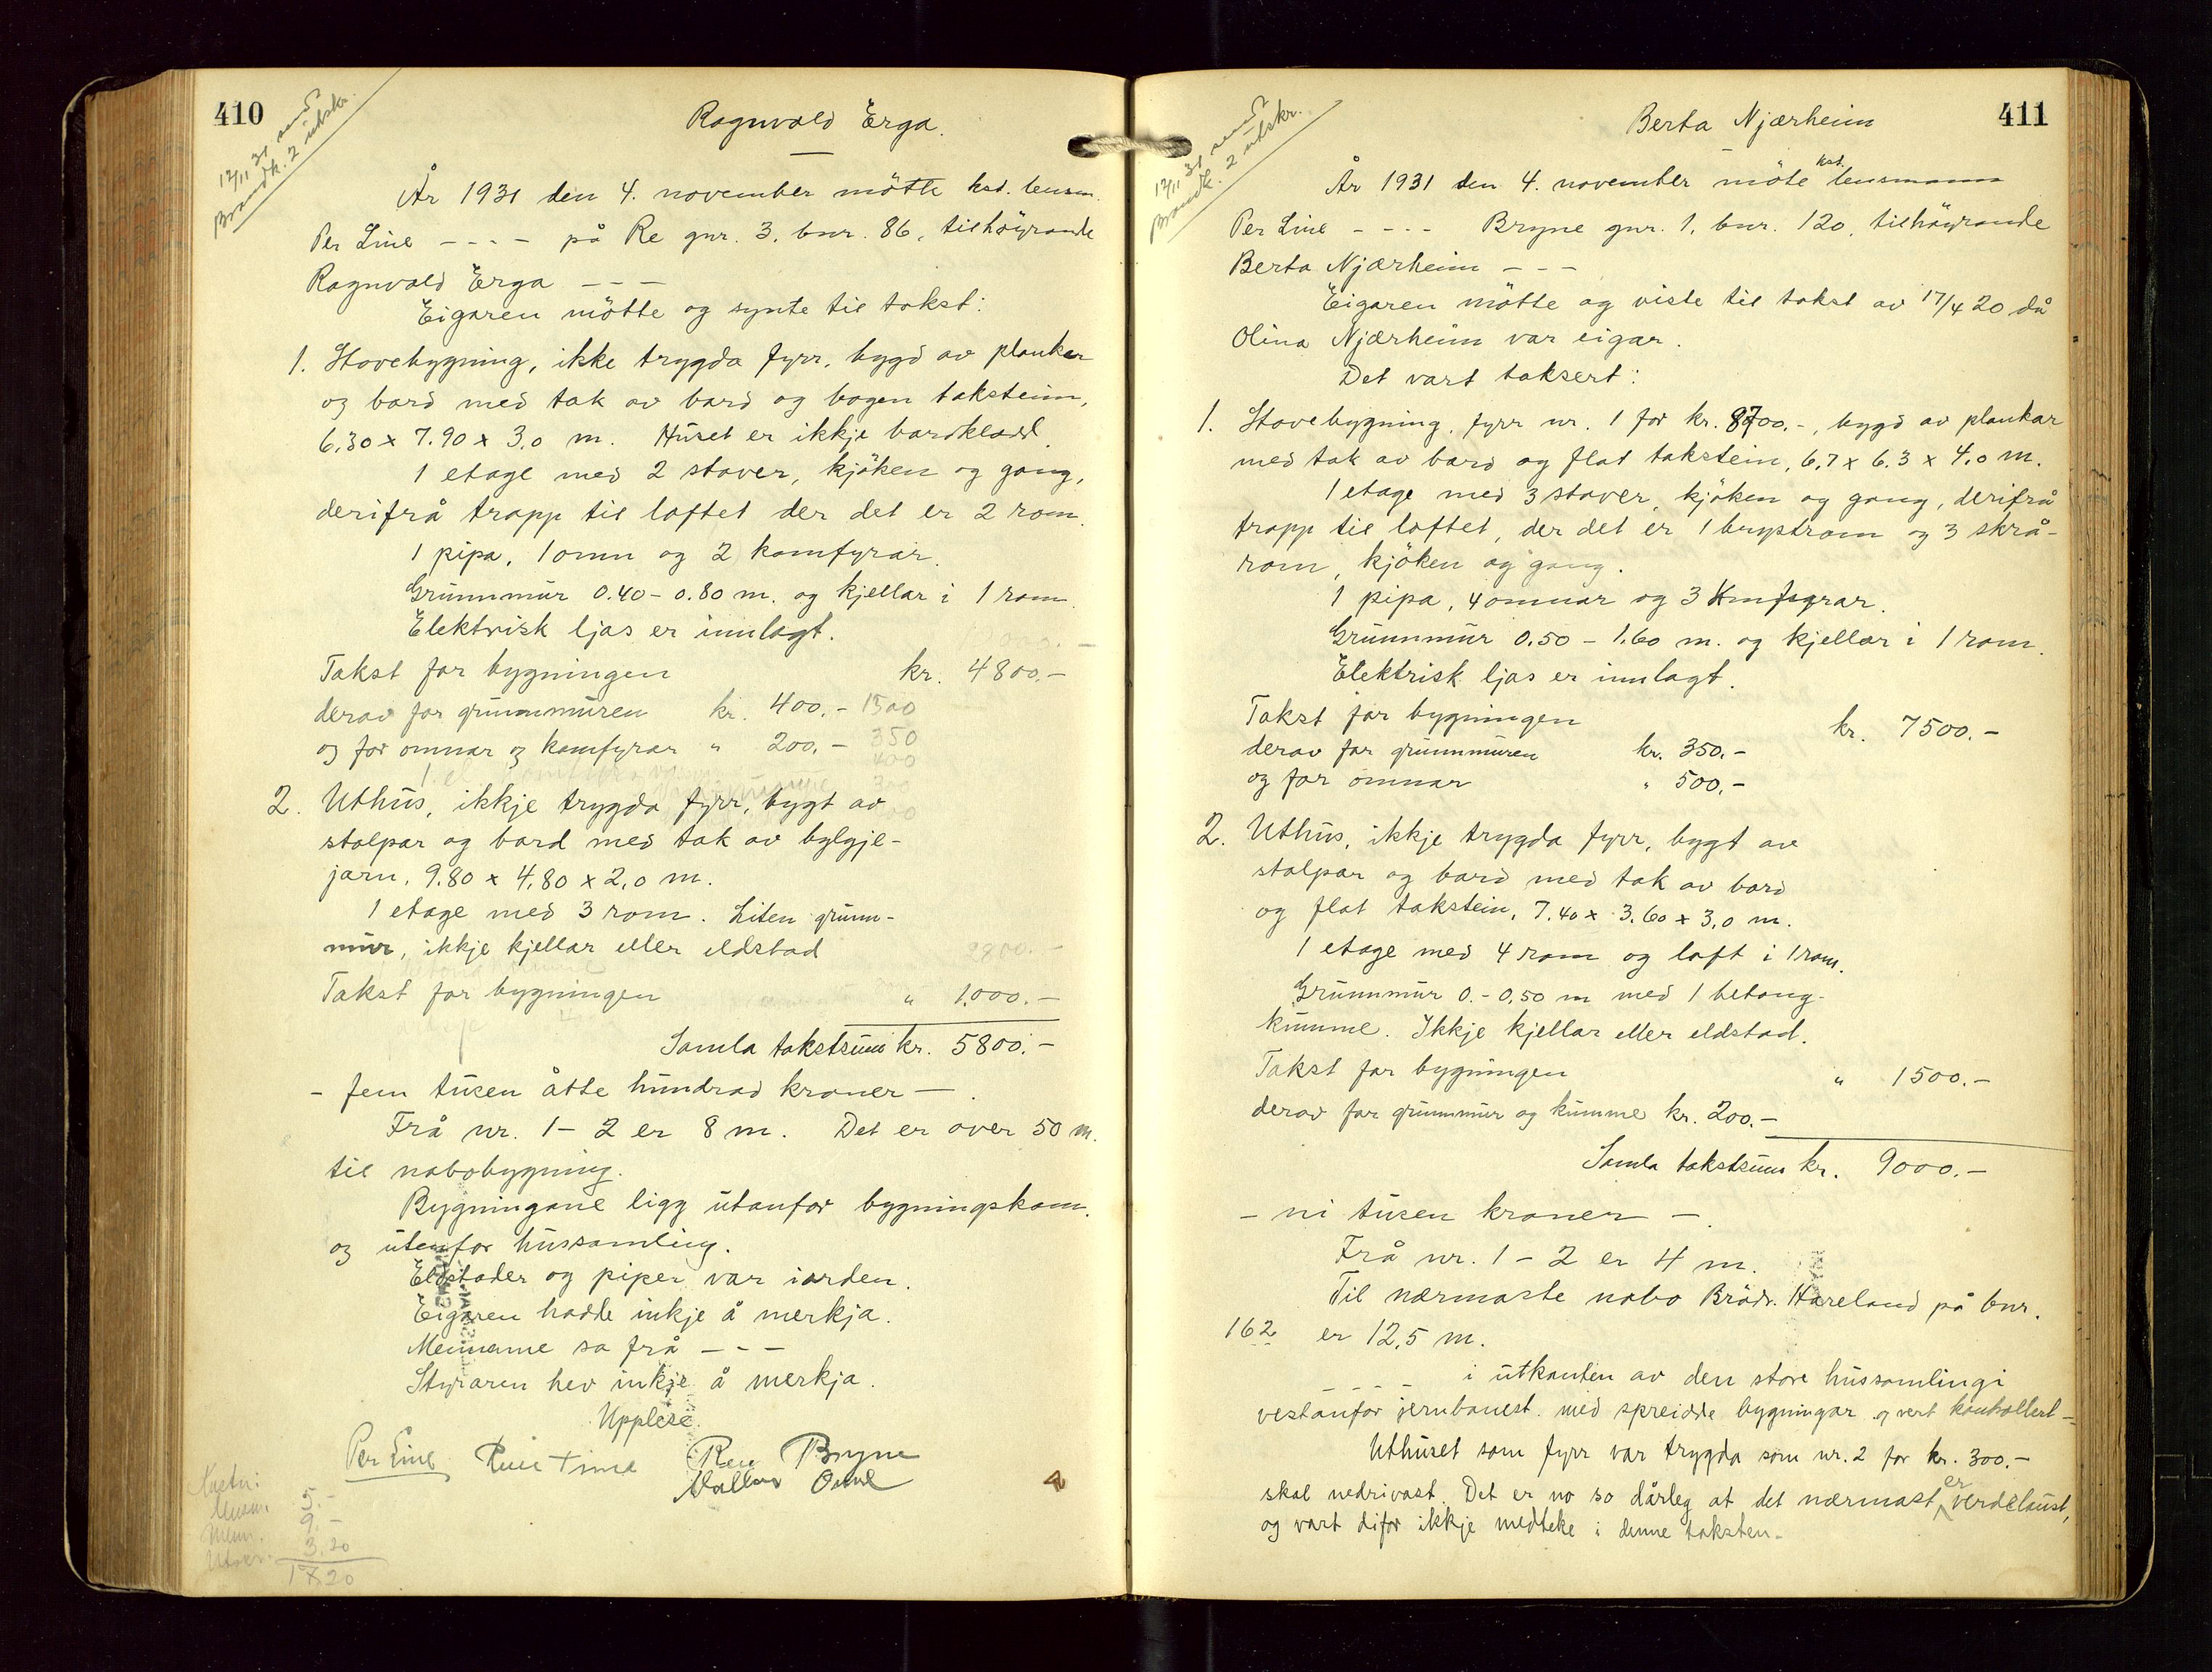 410
12/11 31 send
Brandk. 2 utskr.
Ragnvald Erga.
År 1931 den 4. november mötte kst. lensm.
Per Line - - - - på Re gnr. 3, bnr. 86, tilhöyrande
Ragnvald Erga - - -
Eigaren mötte og synte til takst:
1. Stovebygning, ikke trygda fyrr, bygd av plankar
og bord med tak av bord og bogen takstein,
6,30 x 7.90 x 3,0 m. Huset er ikkje bordklædd.
1 etage med 2 stover, kjöken og gang,
derifrå trapp til loftet der det er 2 rom.
1 pipa, 1 omn og 2 komfyrar.
Grunnmur 0.40 - 0.80 m. og kjellar i 1 rom.
Elektrisk ljos er innlagt.
Takst for bygningen kr. 4800.-
derav for grunnmuren kr. 400.- 1500
og for omnar og komfyrar " 200.- 350
400
300
2. Uthus, ikkje trygda fyrr, bygt av
stolpar og bord med tak av bylgje-
jarn, 9.80 x 4,80 x 2,0 m.
1 etage med 3 rom. Liten grunn-
mur, ikkje kjellar eller eldstad
2800.-
Takst for bygningen " 1.000.-
Samla takstsum kr. 5800.-
- fem tusen åtte hundrad kroner - .
Frå nr. 1 - 2 er 8 m. Det er over 50 m.
til nabobygning.
Bygningane ligg utanfor bygningskom.
og utenfor hussamling.
Eldstader og piper var iorden.
Eigaren hadde inkje å merkja.
Mennene sa frå - - -
Styraren hev inkje å merkja.
Upplese.
Per Line Time Bryne
5.-
9.-
3.20
17.20
411
12/11 31 send
Brandk. 2 utskr.
Berta Njærheim
År 1931 den 4. november möte kst. lensmann
Per Line - - - - Bryne gnr. 1, bnr. 120, tilhöyrande
Berta Njærheim - - -
Eigaren mötte og viste til takst av 17/4 20 då
Olina Njærheim var eigar.
Det vart taksert:
1. Stovebygning, fyrr nr. 1 for kr. 8700.-, bygd av plankar
med tak av bord og flat takstein, 6,7 x 6.3 x 4,0 m.
1 etage med 3 stover, kjöken og gang, derifrå
trapp til loftet, der det er 1 brystrom og 3 skrå-
rom, kjöken og gang.
1 pipa, 4 omnar og 3 komfyrar.
Grunnmur 0.50 - 1.60 m. og kjellar i 1 rom.
Elektrisk ljos er innlagt.
Takst for bygningen kr. 7500.-
derav for grunnmuren kr. 350.-
og for omnar " 500.-
2. Uthus, ikkje trygda fyrr, bygt av
stolpar og bord med tak av bord
og flat takstein, 7.40 x 3.60 x 3,0 m.
1 etage med 4 rom og loft i 1 rom.
Grunnmur 0.- 0,50 m med 1 betong-
kumme. Ikkje kjellar eller eldstad.
Takst for bygningen " 1500.-
derav for grunnmur og kumme kr. 200.-
Samla takstsum kr. 9000.-
- ni tusen kroner - .
Frå nr. 1 - 2 er 4 m.
Til nærmaste nabo Brödr. Håreland på bnr.
162 er 12,5 m.
- - - - i utkanten av den store hussamling i
vestanfor jernbanest. med spreidde bygningar og vert kontrollert -
Uthuset som fyrr var trygda som nr. 2 for kr. 300.-
skal nedrivast. Det er no so dårleg at det nærmast er verdelaust,
og vart difor ikkje medteke i denne taksten.-